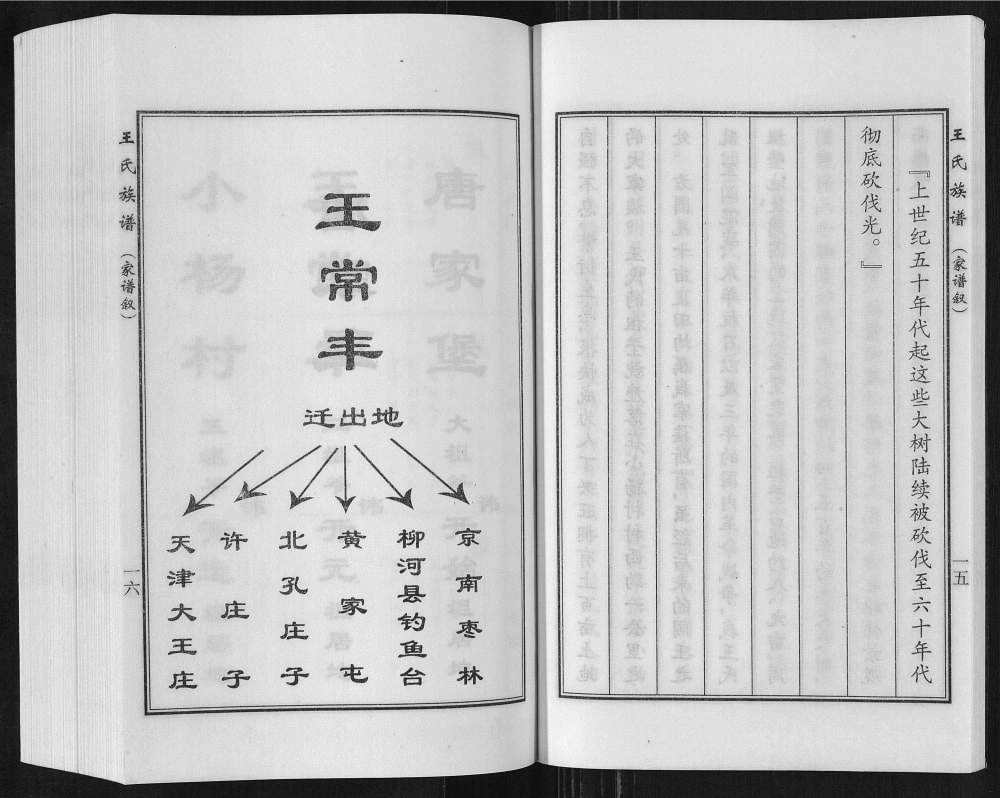 王氏族谱（家谱叙）
『上世纪五十年代起这些大树陆续被砍伐至六十年代
彻底砍伐光。』
一五
王氏族谱（家谱叙）
王常丰
迁出地
京南枣林
柳河县钓鱼台
黄家屯
北孔庄子
许庄子
天津大王庄
一六